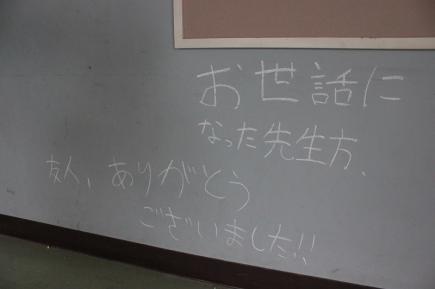 お世話に
なった先生方、
友人、ありがとう
ございました!!